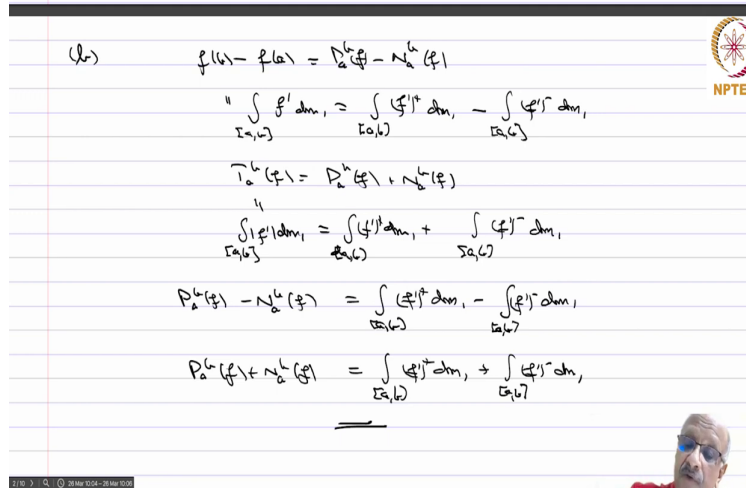 (b) f(b) - f(a) = P_a^b(f) - N_a^b(f)
" ∫_{[a,b]} f' dm₁ = ∫_{[a,b]} (f')⁺ dm₁ - ∫_{[a,b]} (f')⁻ dm₁
T_a^b(f) = P_a^b(f) + N_a^b(f)
"
∫_{[a,b]} |f'| dm₁ = ∫_{[a,b]} (f')⁺ dm₁ + ∫_{[a,b]} (f')⁻ dm₁
P_a^b(f) - N_a^b(f) = ∫_{[a,b]} (f')⁺ dm₁ - ∫_{[a,b]} (f')⁻ dm₁
P_a^b(f) + N_a^b(f) = ∫_{[a,b]} (f')⁺ dm₁ + ∫_{[a,b]} (f')⁻ dm₁
NPTE
2 / 10 > 26 Mar 10:04 - 26 Mar 10:06